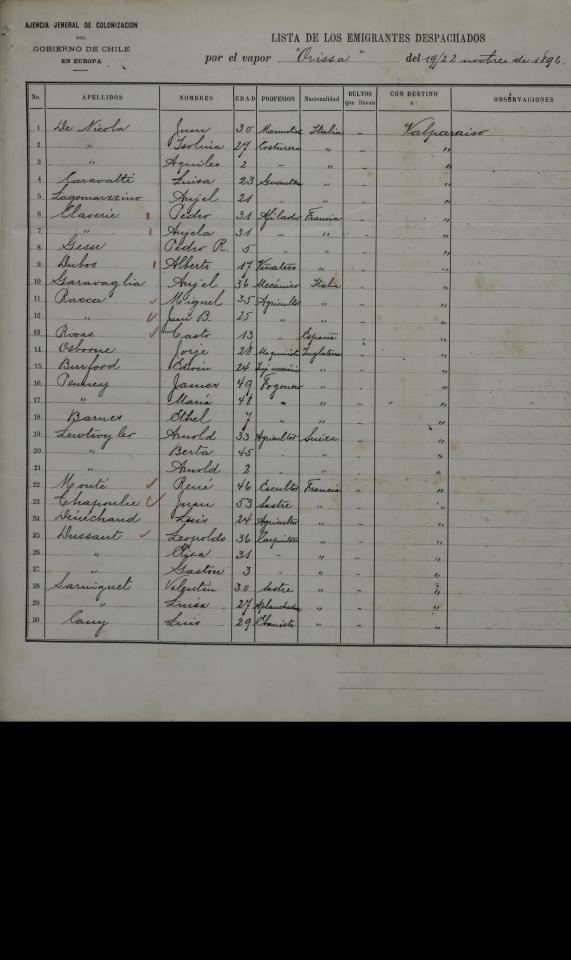 AJENCIA JENERAL DE COLONIZACION
DEL
GOBIERNO DE CHILE
EN EUROPA
LISTA DE LOS EMIGRANTES DESPACHADOS
por el vapor "Orissa" del 19/22 novbre de 1896.
No. APELLIDOS NOMBRES EDAD PROFESION Nacionalidad BULTOS que llevan CON DESTINO a: OBSERVACIONES
1 De Nicola Juan 30 Marmolista Italia - Valparaiso
2 " Isolina 27 Costurera " - "
3 " Aquiles 2 - " - "
4 Caravatti Luisa 23 Guantera " - "
5 Lagomarzzino Anjel 21 - " - "
6 Claverie Pedro 31 Afilador Francia - "
7 " Anjela 31 - " - "
8 Gesse Pedro R. 5 - " - "
9 Dubos Alberto 17 Viñatero " - "
10 Garavaglia Anjel 36 Mecánico Italia - "
11 Racca Miguel 35 Agricultor " - "
12 " Juan B. 25 " " - "
13 Rivas Casto 13 - España - "
14 Osborne Jorje 28 Maquinista Inglaterra - "
15 Burford Edwin 24 " - "
16 Penney James 49 Fogonero " - "
17 " María 48 " " - "
18 Barnes Ethel 7 " " - "
19 Arnold 33 Agricultor Suiza - "
20 " Berta 45 - " - "
21 " Arnold 2 - " - "
22 Monté René 46 Escultor Francia - "
23 Chapoulie Juan 53 Sastre " - "
24 Dénéchand Luis 24 Agricultor " - "
25 Dussaut Leopoldo 36 Carpintero " - "
26 " 31 - " - "
27 " Gaston 3 - " - "
28 Sarniguet Valentin 30 Sastre " - "
29 " Luisa 27 Aplanchadora " - "
30 Luis 29 Ebanista " - "